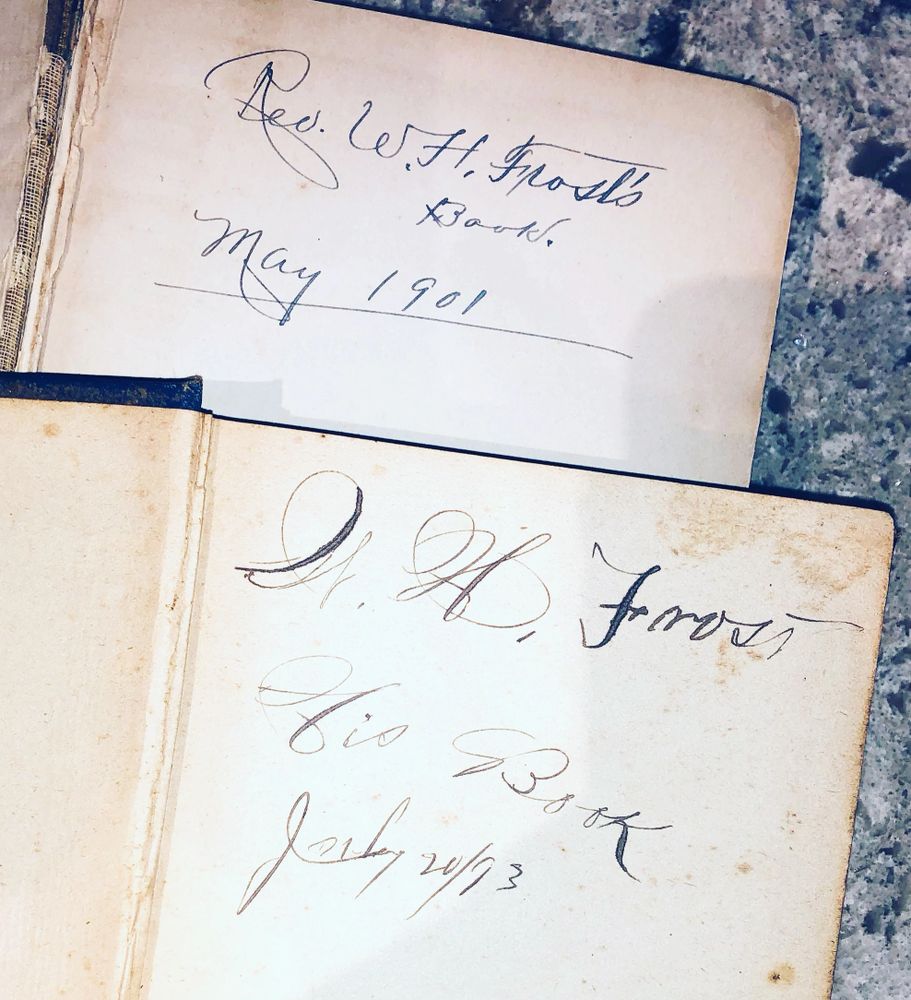 Rev. W. H. Frost's
Book.
May 1901
W. H. Frost
His Book
July 20/93